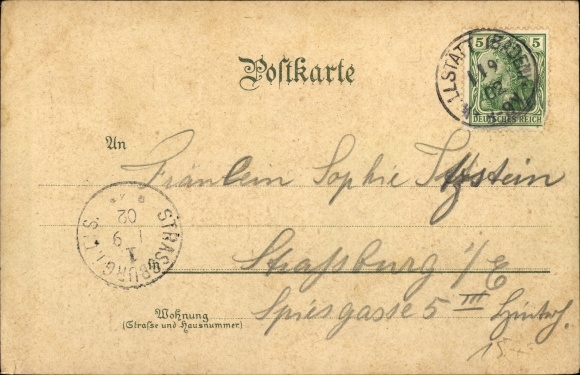 Postkarte
5 5
DEUTSCHES REICH
ILLSTÄTT (BADEN)
11 9
02
An
Fräulein Sophie
Straßburg i/E
Spiesgasse 5 III Hinterh.
STRASSBURG i. ELS.
1 9
02
Wohnung
(Straße und Hausnummer)
15